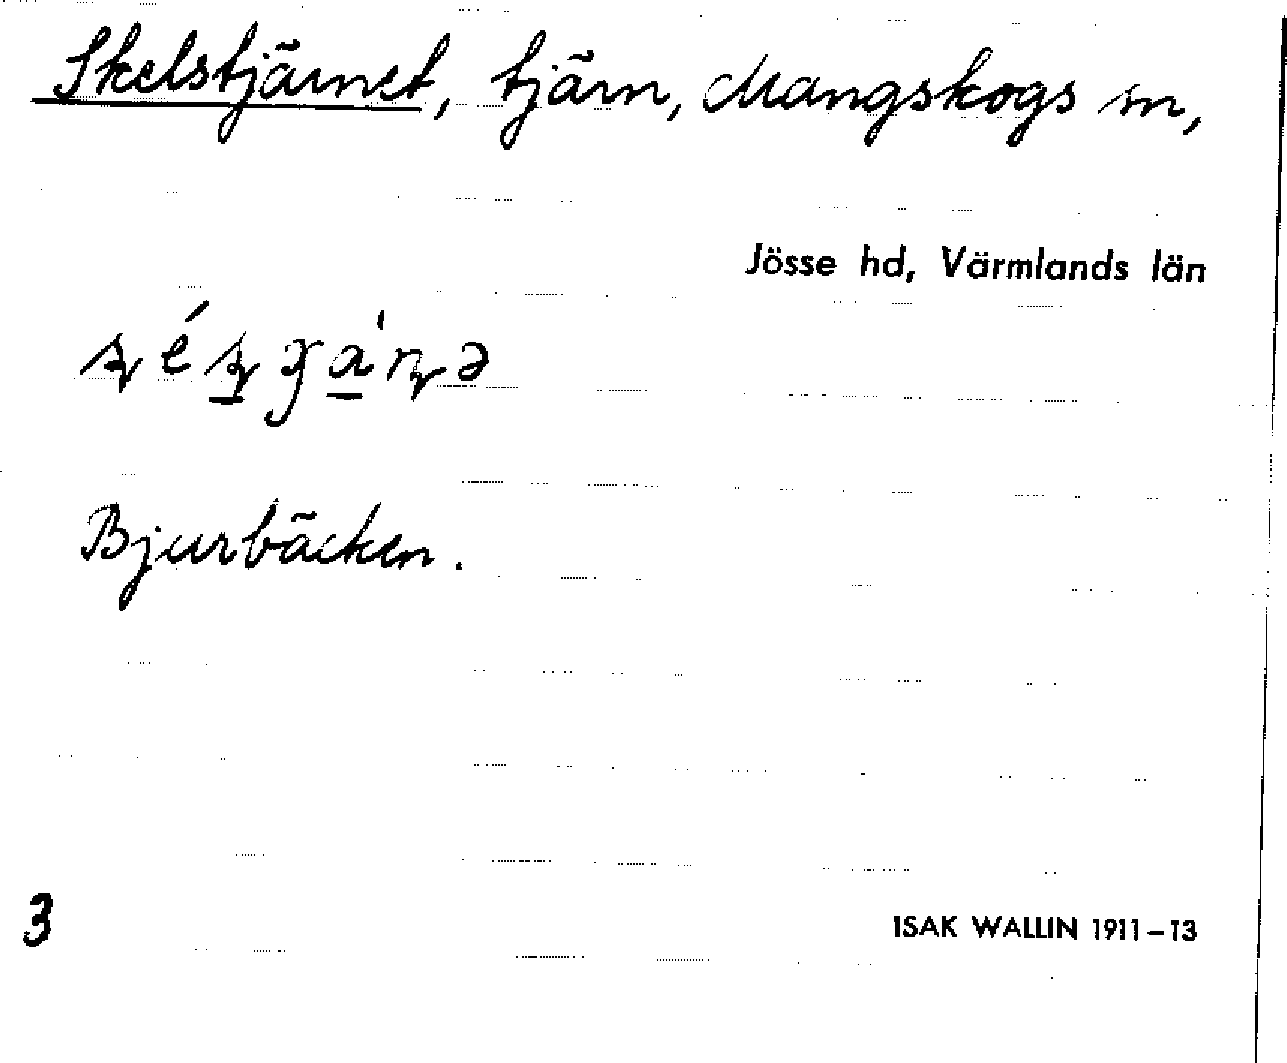 Skelstjärnet, tjärn, Mangskogs sn,
Jösse hd, Värmlands län
Bjurbäcken.
3
ISAK WALLIN 1911–13